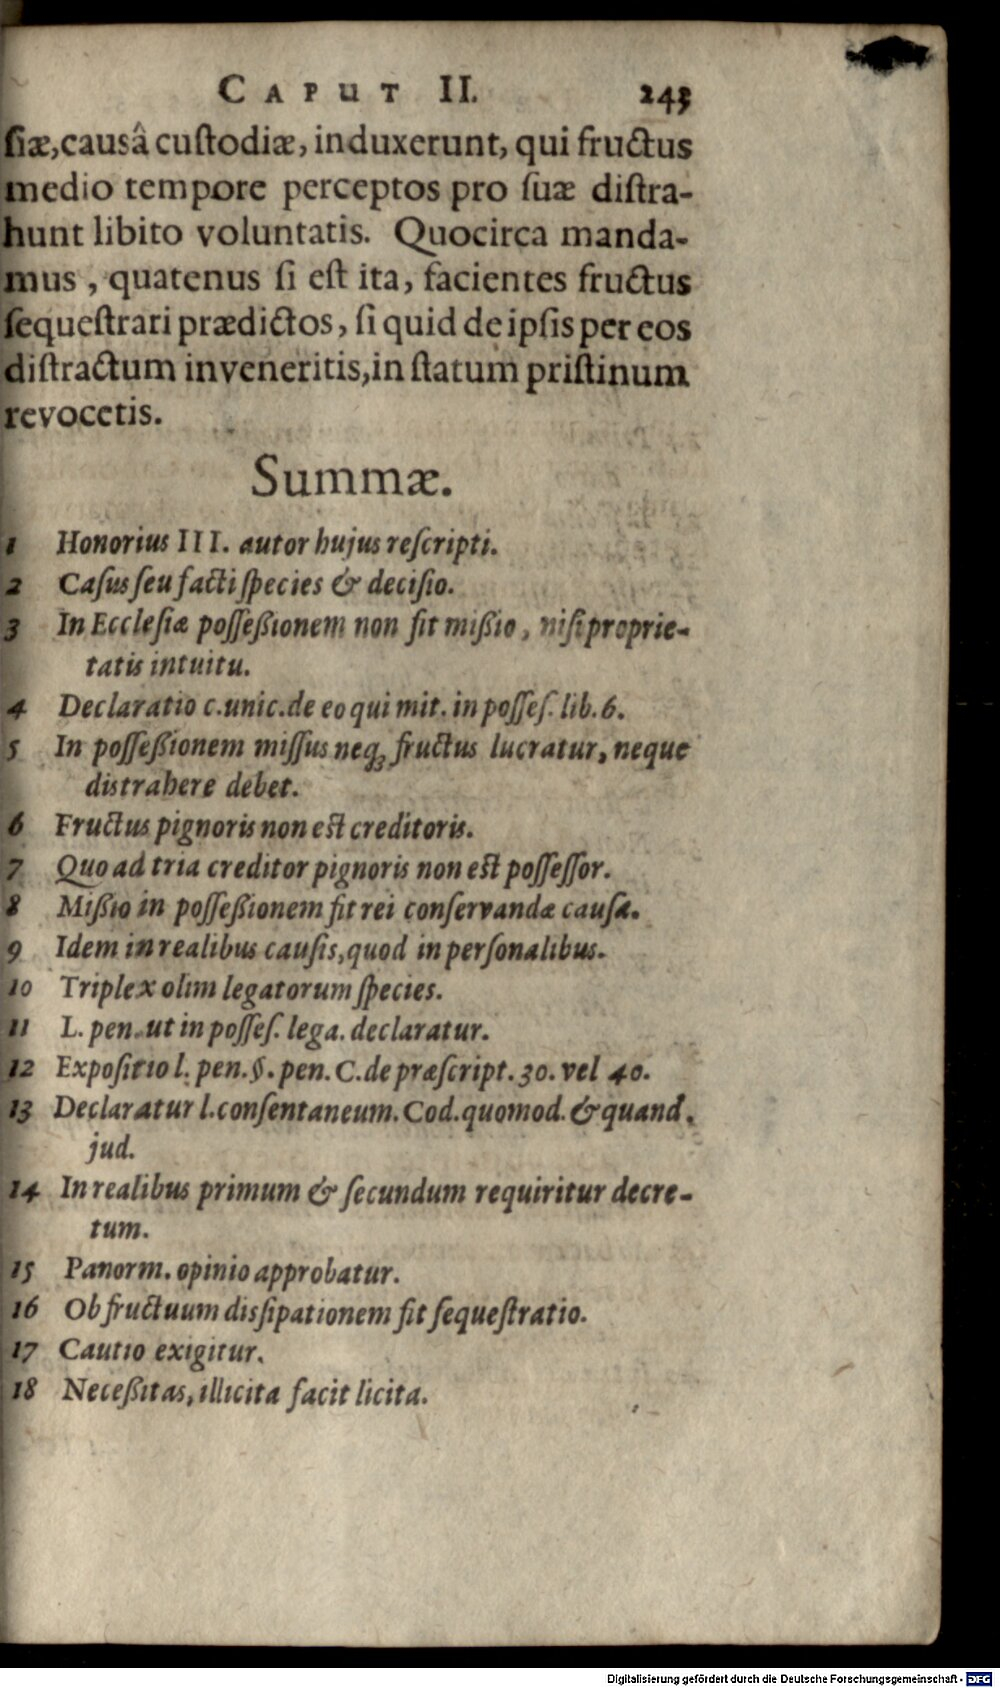 CAPUT II. 243
ſiæ, causâ cuſtodiæ, induxerunt, qui fructus
medio tempore perceptos pro ſuæ diſtra-
hunt libito voluntatis. Quocirca manda-
mus, quatenus ſi eſt ita, facientes fructus
ſequeſtrari prædictos, ſi quid de ipſis per eos
diſtractum inveneritis, in ſtatum priſtinum
revocetis.
Summæ.
1 Honorius III. autor hujus reſcripti.
2 Caſus ſeu facti ſpecies & deciſio.
3 In Eccleſiæ poſſeßionem non fit mißio, niſi proprie-
tatis intuitu.
4 Declaratio c. unic. de eo qui mit. in poſſeſ. lib. 6.
5 In poſſeßionem miſſus neqꝫ fructus lucratur, neque
distrahere debet.
6 Fructus pignoris non est creditoris.
7 Quo ad tria creditor pignoris non est poſſeſſor.
8 Mißio in poſſeßionem fit rei conſervandæ cauſa.
9 Idem in realibus cauſis, quod in perſonalibus.
10 Triplex olim legatorum ſpecies.
11 L. pen. ut in poſſeſ. lega. declaratur.
12 Expoſitio l. pen. §. pen. C. de præſcript. 30. vel 40.
13 Declaratur l. conſentaneum. Cod. quomod. & quand.
jud.
14 In realibus primum & ſecundum requiritur decre-
tum.
15 Panorm. opinio approbatur.
16 Ob fructuum disſipationem fit ſequeſtratio.
17 Cautio exigitur.
18 Neceßitas, illicita facit licita.
Digitalisierung gefördert durch die Deutsche Forschungsgemeinschaft - DFG